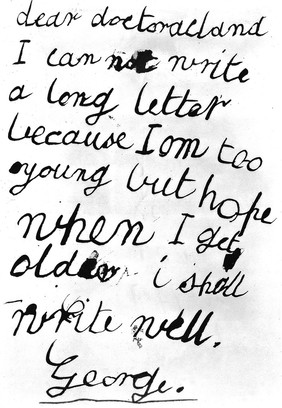 dear doctoracland
I can not write
a long letter
because I om too
young but hope
when I get
older i shall
write well.
George.